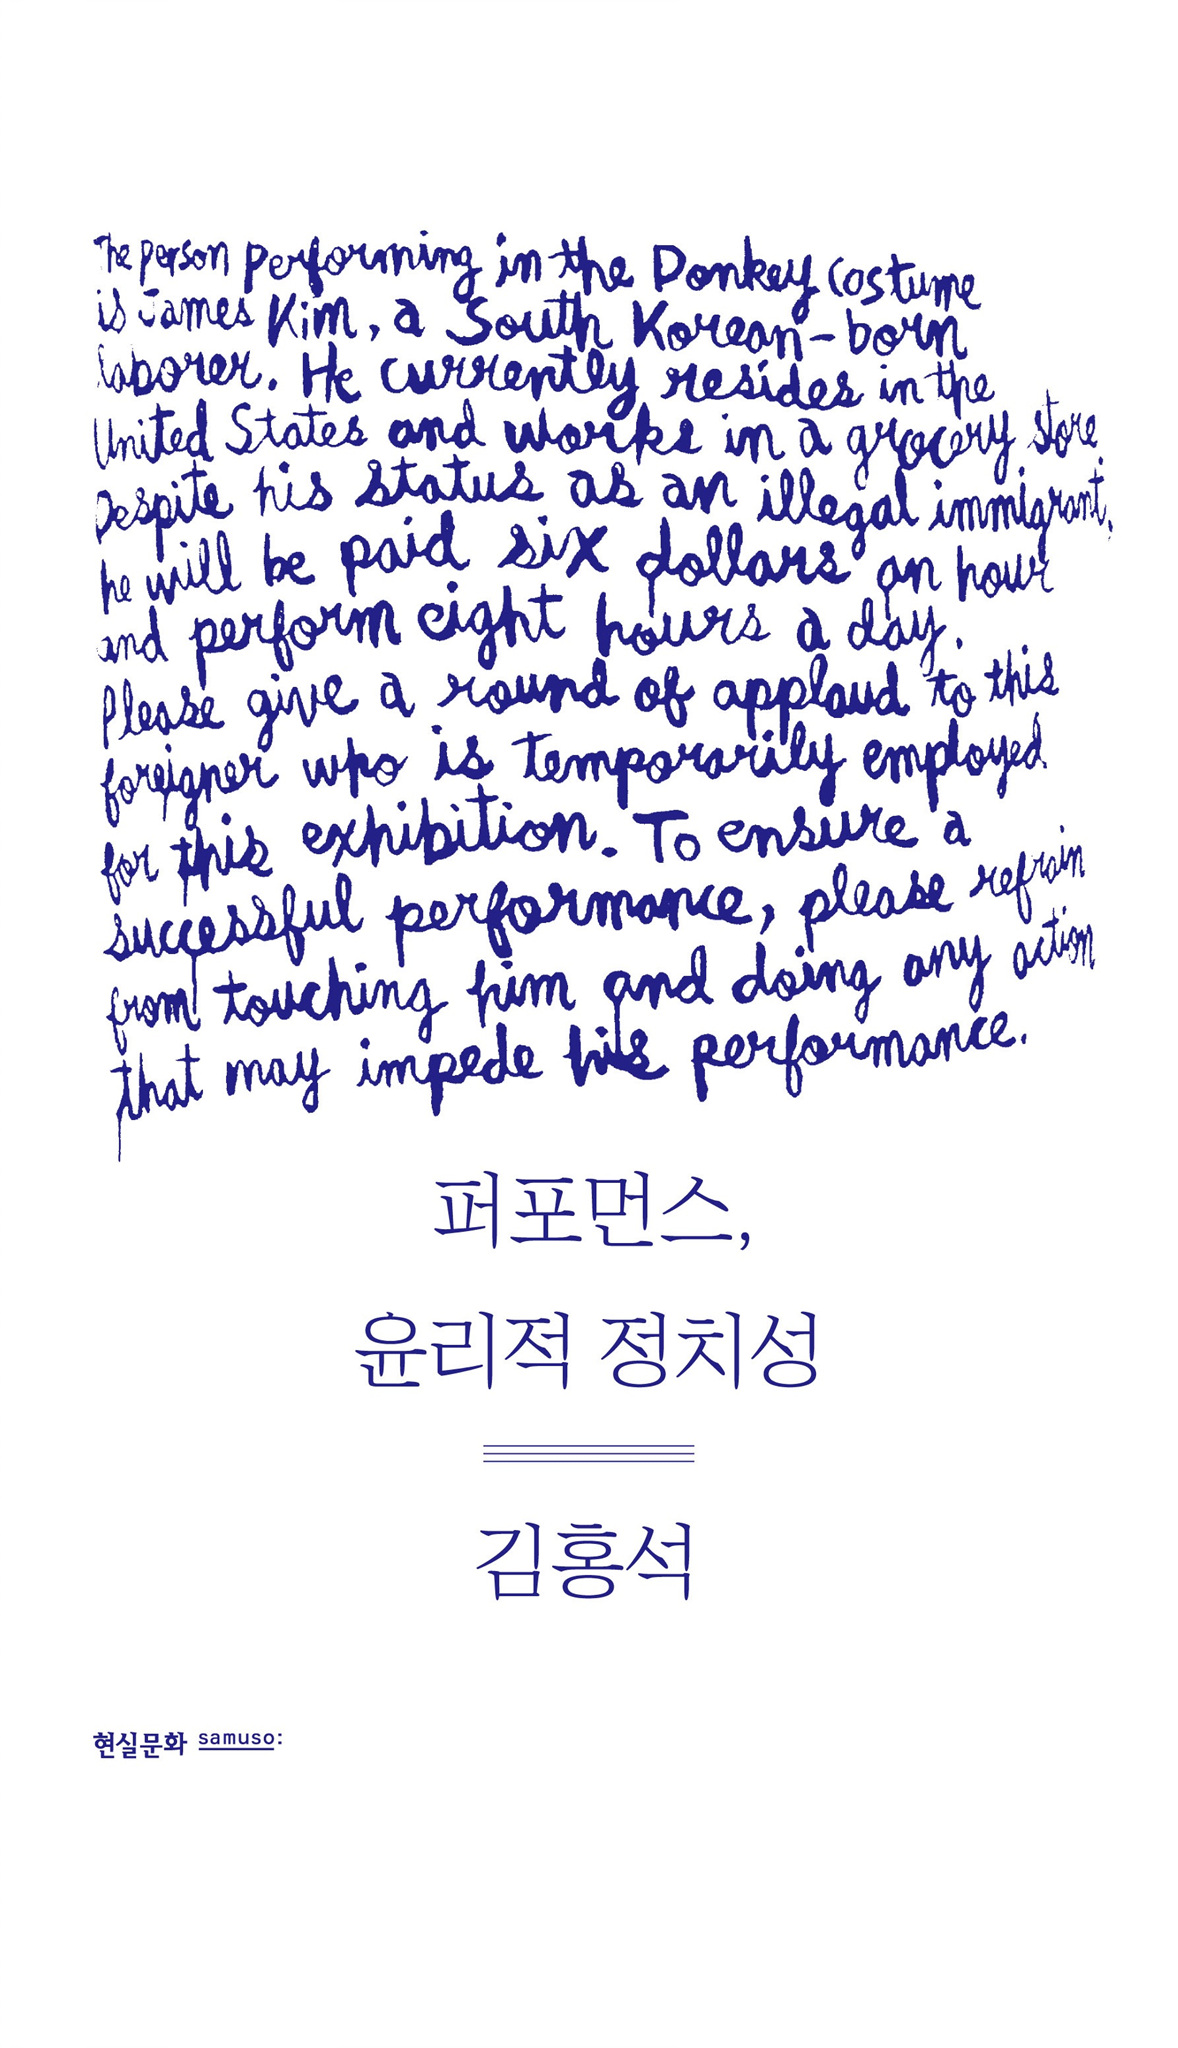 The person performing in the Donkey costume
is James Kim, a South Korean-born
laborer. He currently resides in the
United States and works in a grocery store.
Despite his status as an illegal immigrant,
he will be paid six dollars an hour
and perform eight hours a day.
Please give a round of applaud to this
foreigner who is temporarily employed
for this exhibition. To ensure a
successful performance, please refrain
from touching him and doing any action
that may impede his performance.
퍼포먼스,
윤리적 정치성
김홍석
현실문화 samuso: